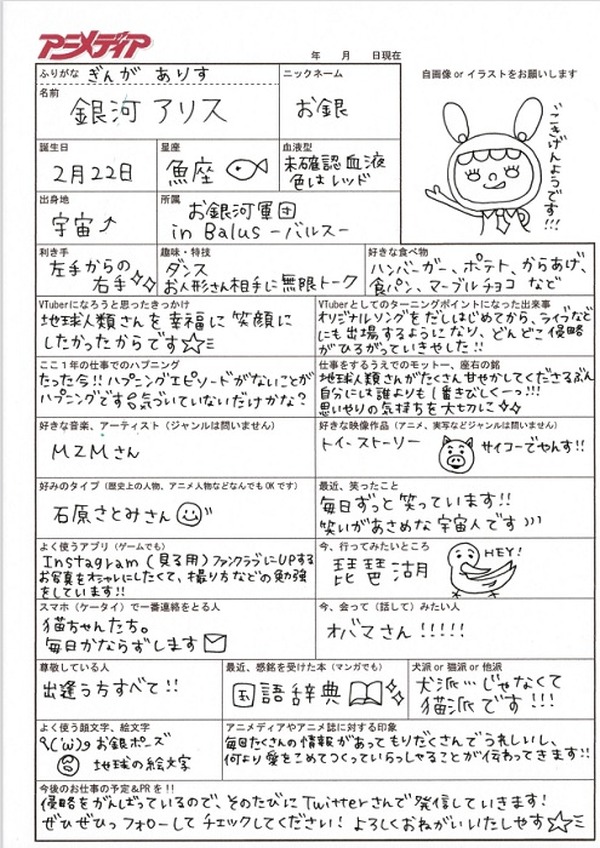 アニメディア
年 月 日現在
ふりがな ぎんが ありす
名前
銀河 アリス
ニックネーム
お銀
自画像 or イラストをお願いします
ごきげんようです!!!
誕生日
2月22日
星座
魚座
血液型
未確認血液
色はレッド
出身地
宇宙↑
所属
お銀河軍団
in Balus -バルス-
利き手
左手からの
右手
趣味・特技
ダンス
お人形さん相手に無限トーク
好きな食べ物
ハンバーガー、ポテト、からあげ、
食パン、マーブルチョコ など
VTuberになろうと思ったきっかけ
地球人類さんを幸福に笑顔に
したかったからです☆ミ
VTuberとしてのターニングポイントになった出来事
オリジナルソングをだしはじめてから、ライブなど
にも出場するようになり、どんどこ侵略
がひろがっていきやした!!
ここ1年の仕事でのハプニング
たった今!!ハプニングエピソードがないことが
ハプニングです 気づいていないだけかな?
仕事をするうえでのモットー、座右の銘
地球人類さんがたくさん甘やかしてくださるぶん
自分には誰よりも1番きびしくーっ!!!
思いやりの気持ちを大切に
好きな音楽、アーティスト（ジャンルは問いません）
MZMさん
好きな映像作品（アニメ、実写などジャンルは問いません）
トイ・ストーリー
サイコーでやんす!!
好みのタイプ（歴史上の人物、アニメ人物などなんでもOKです）
石原さとみさん
最近、笑ったこと
毎日ずっと笑っています!!
笑いがあさめな宇宙人です )))
よく使うアプリ（ゲームでも）
Instagram (見る用) ファンクラブにUPする
お写真をオシャレにしたくて、撮り方などの勉強
をしています!!
今、行ってみたいところ
琵琶湖
HEY!
スマホ（ケータイ）で一番連絡をとる人
猫ちゃんたち。
毎日かならずします
今、会って（話して）みたい人
オバマさん!!!!!
尊敬している人
出逢う方すべて!!
最近、感銘を受けた本（マンガでも）
国語辞典
犬派 or 猫派 or 他派
犬派…じゃなくて
猫派です!!!
よく使う顔文字、絵文字
٩(´ω`)و お銀ポーズ
地球の絵文字
アニメディアやアニメ誌に対する印象
毎回たくさんの情報があってもりだくさんでうれしいし、
何より愛をこめてつくっていらっしゃることが伝わってきます!!
今後のお仕事の予定&PRを!!
侵略をがんばっているので、そのたびにTwitterさんで発信していきます!
ぜひぜひっフォローしてチェックしてください! よろしくおねがいいたしやす☆ミ